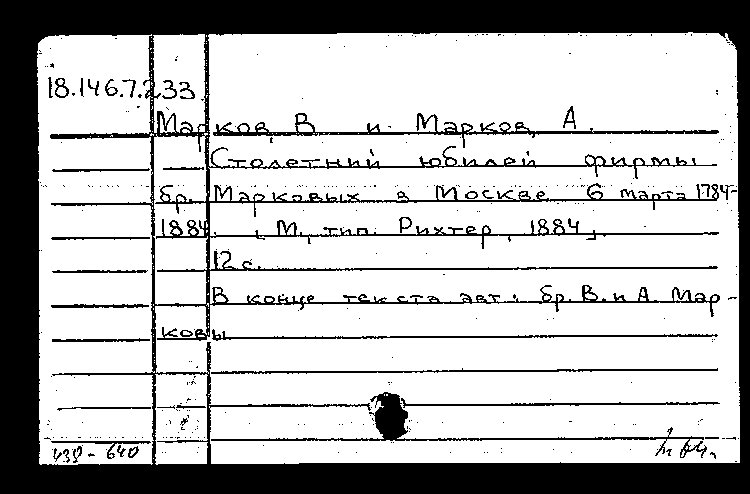 18.146.7.233
Марков, В. и Марков, А.
Столетний юбилей фирмы
бр. Марковых в Москве 6 марта 1784-
1884. [М., тип. Рихтер, 1884].
12 с.
В конце текста авт.: бр. В. и А. Мар-
ковы
439-640